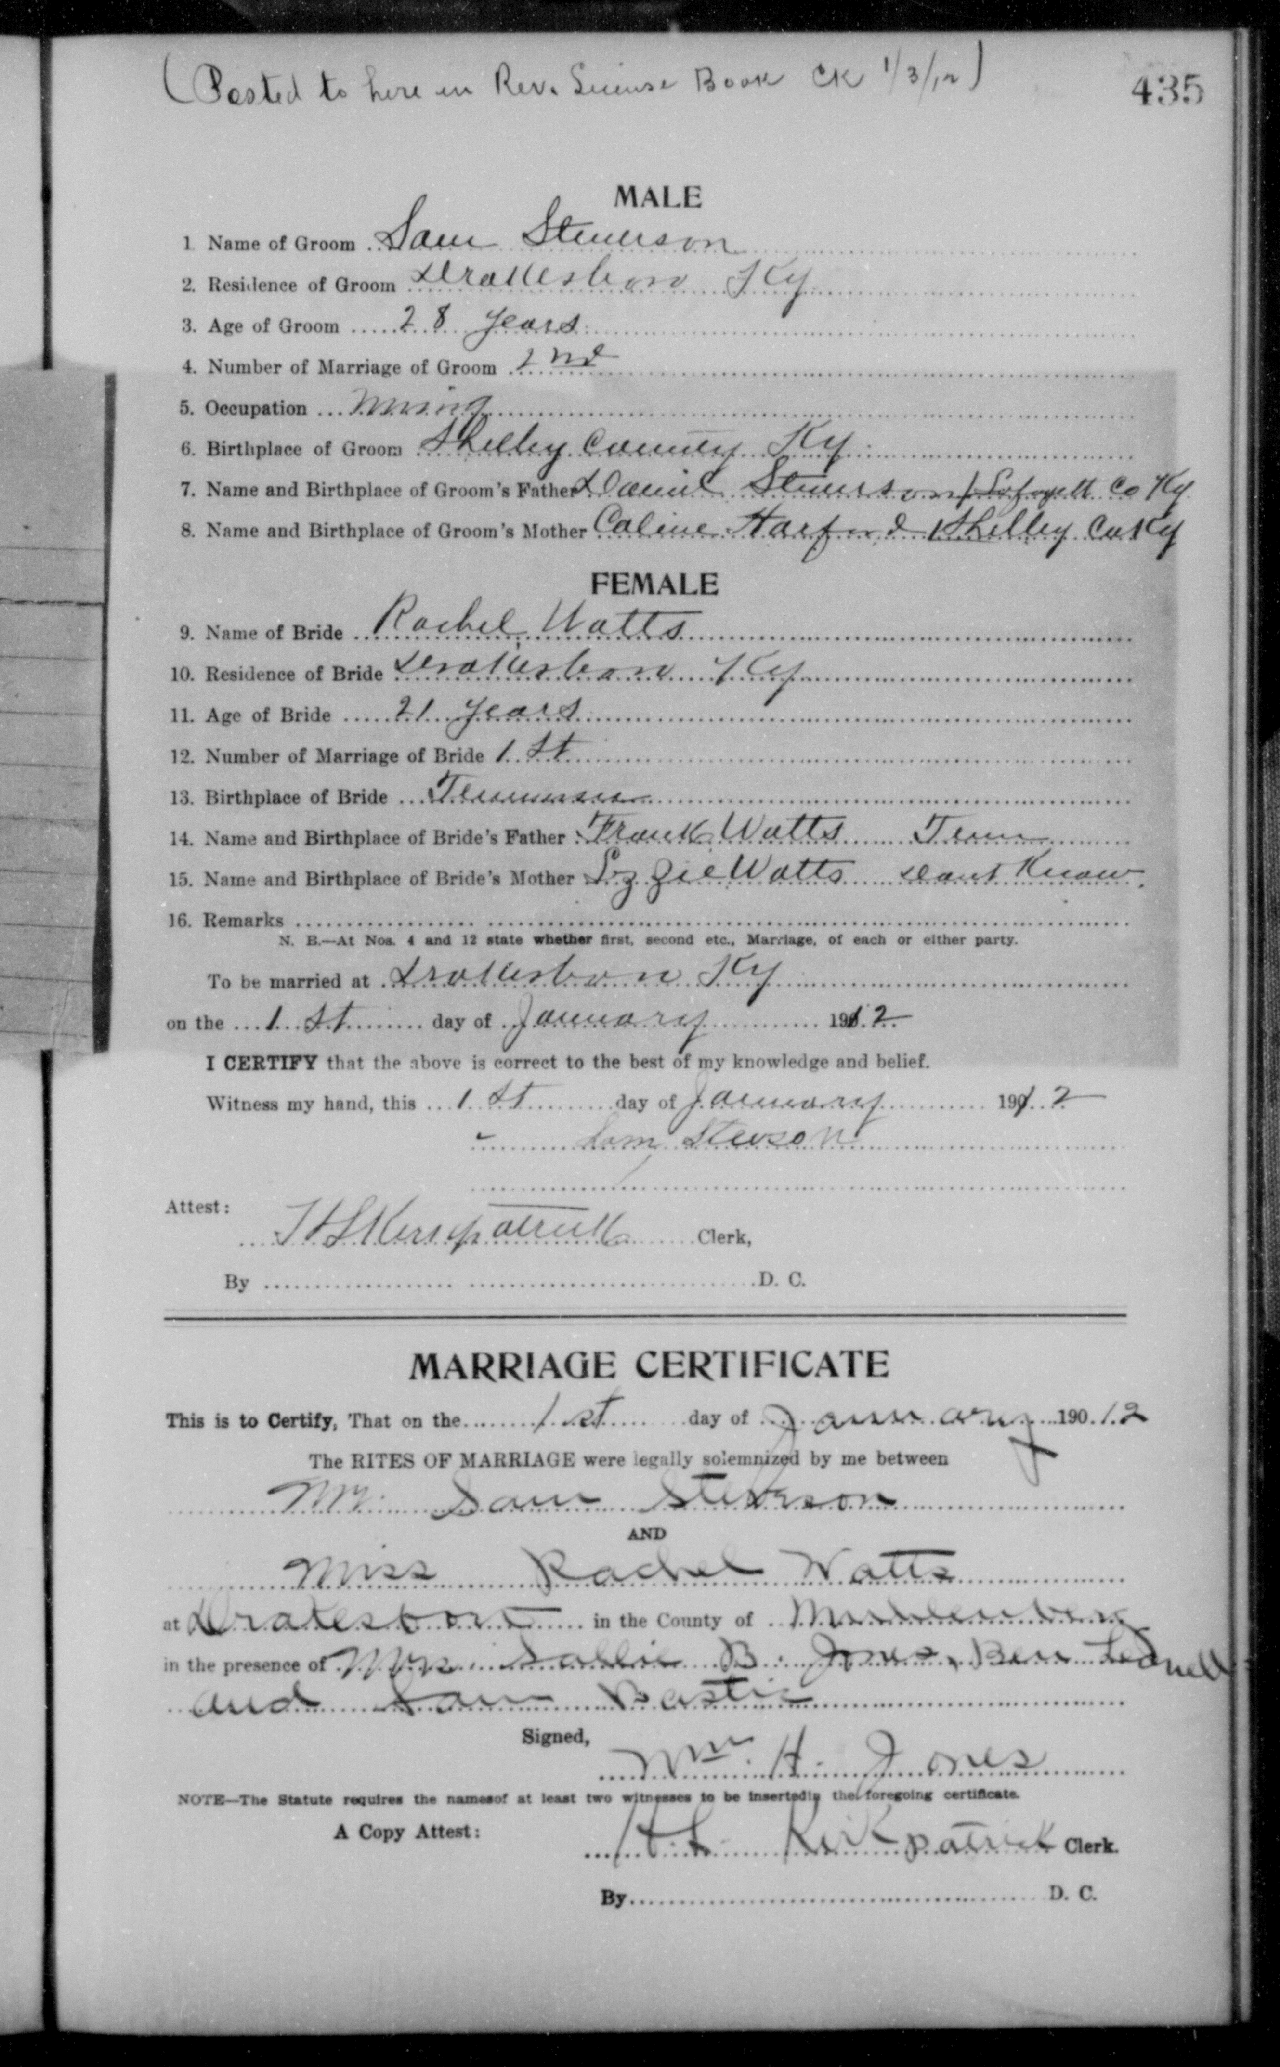 (Posted to here in Rev. License Book CK 1/3/12)
435
MALE
1 Name of Groom Sam Stenerson
2. Residence of Groom Drakesboro Ky
3. Age of Groom 28 years
4. Number of Marriage of Groom 2nd
5. Occupation Mining
6. Birthplace of Groom Shelby County Ky.
7. Name and Birthplace of Groom's Father Daniel Stenerson / Lafayett Co Ky
8. Name and Birthplace of Groom's Mother Caline Harford / Shelby Co Ky
FEMALE
9. Name of Bride Rachel Watts
10. Residence of Bride Drakesboro Ky
11. Age of Bride 21 years
12. Number of Marriage of Bride 1st
13. Birthplace of Bride Tennessee
14. Name and Birthplace of Bride's Father Frank Watts Tenn
15. Name and Birthplace of Bride's Mother Lizzie Watts Dont Know.
16. Remarks
N. B.—At Nos. 4 and 12 state whether first, second etc., Marriage, of each or either party.
To be married at Drakesboro Ky
on the 1st day of January 1912
I CERTIFY that the above is correct to the best of my knowledge and belief.
Witness my hand, this 1st day of January 1912
Sam Stevson
Attest:
H L Kirkpatrick Clerk,
By D. C.
MARRIAGE CERTIFICATE
This is to Certify, That on the 1st day of January 190 12
The RITES OF MARRIAGE were legally solemnized by me between
Mr. Sam Steverson
AND
Miss Rachel Watts
at Drakesboro in the County of Muhlenberg
in the presence of Mrs. Sallie B. Jones, Ben
and Sam Bastie
Signed,
Wm. H. Jones
NOTE—The Statute requires the namesof at least two witnesses to be insertedin the foregoing certificate.
A Copy Attest:
H. L. Kirkpatrick Clerk.
By D. C.